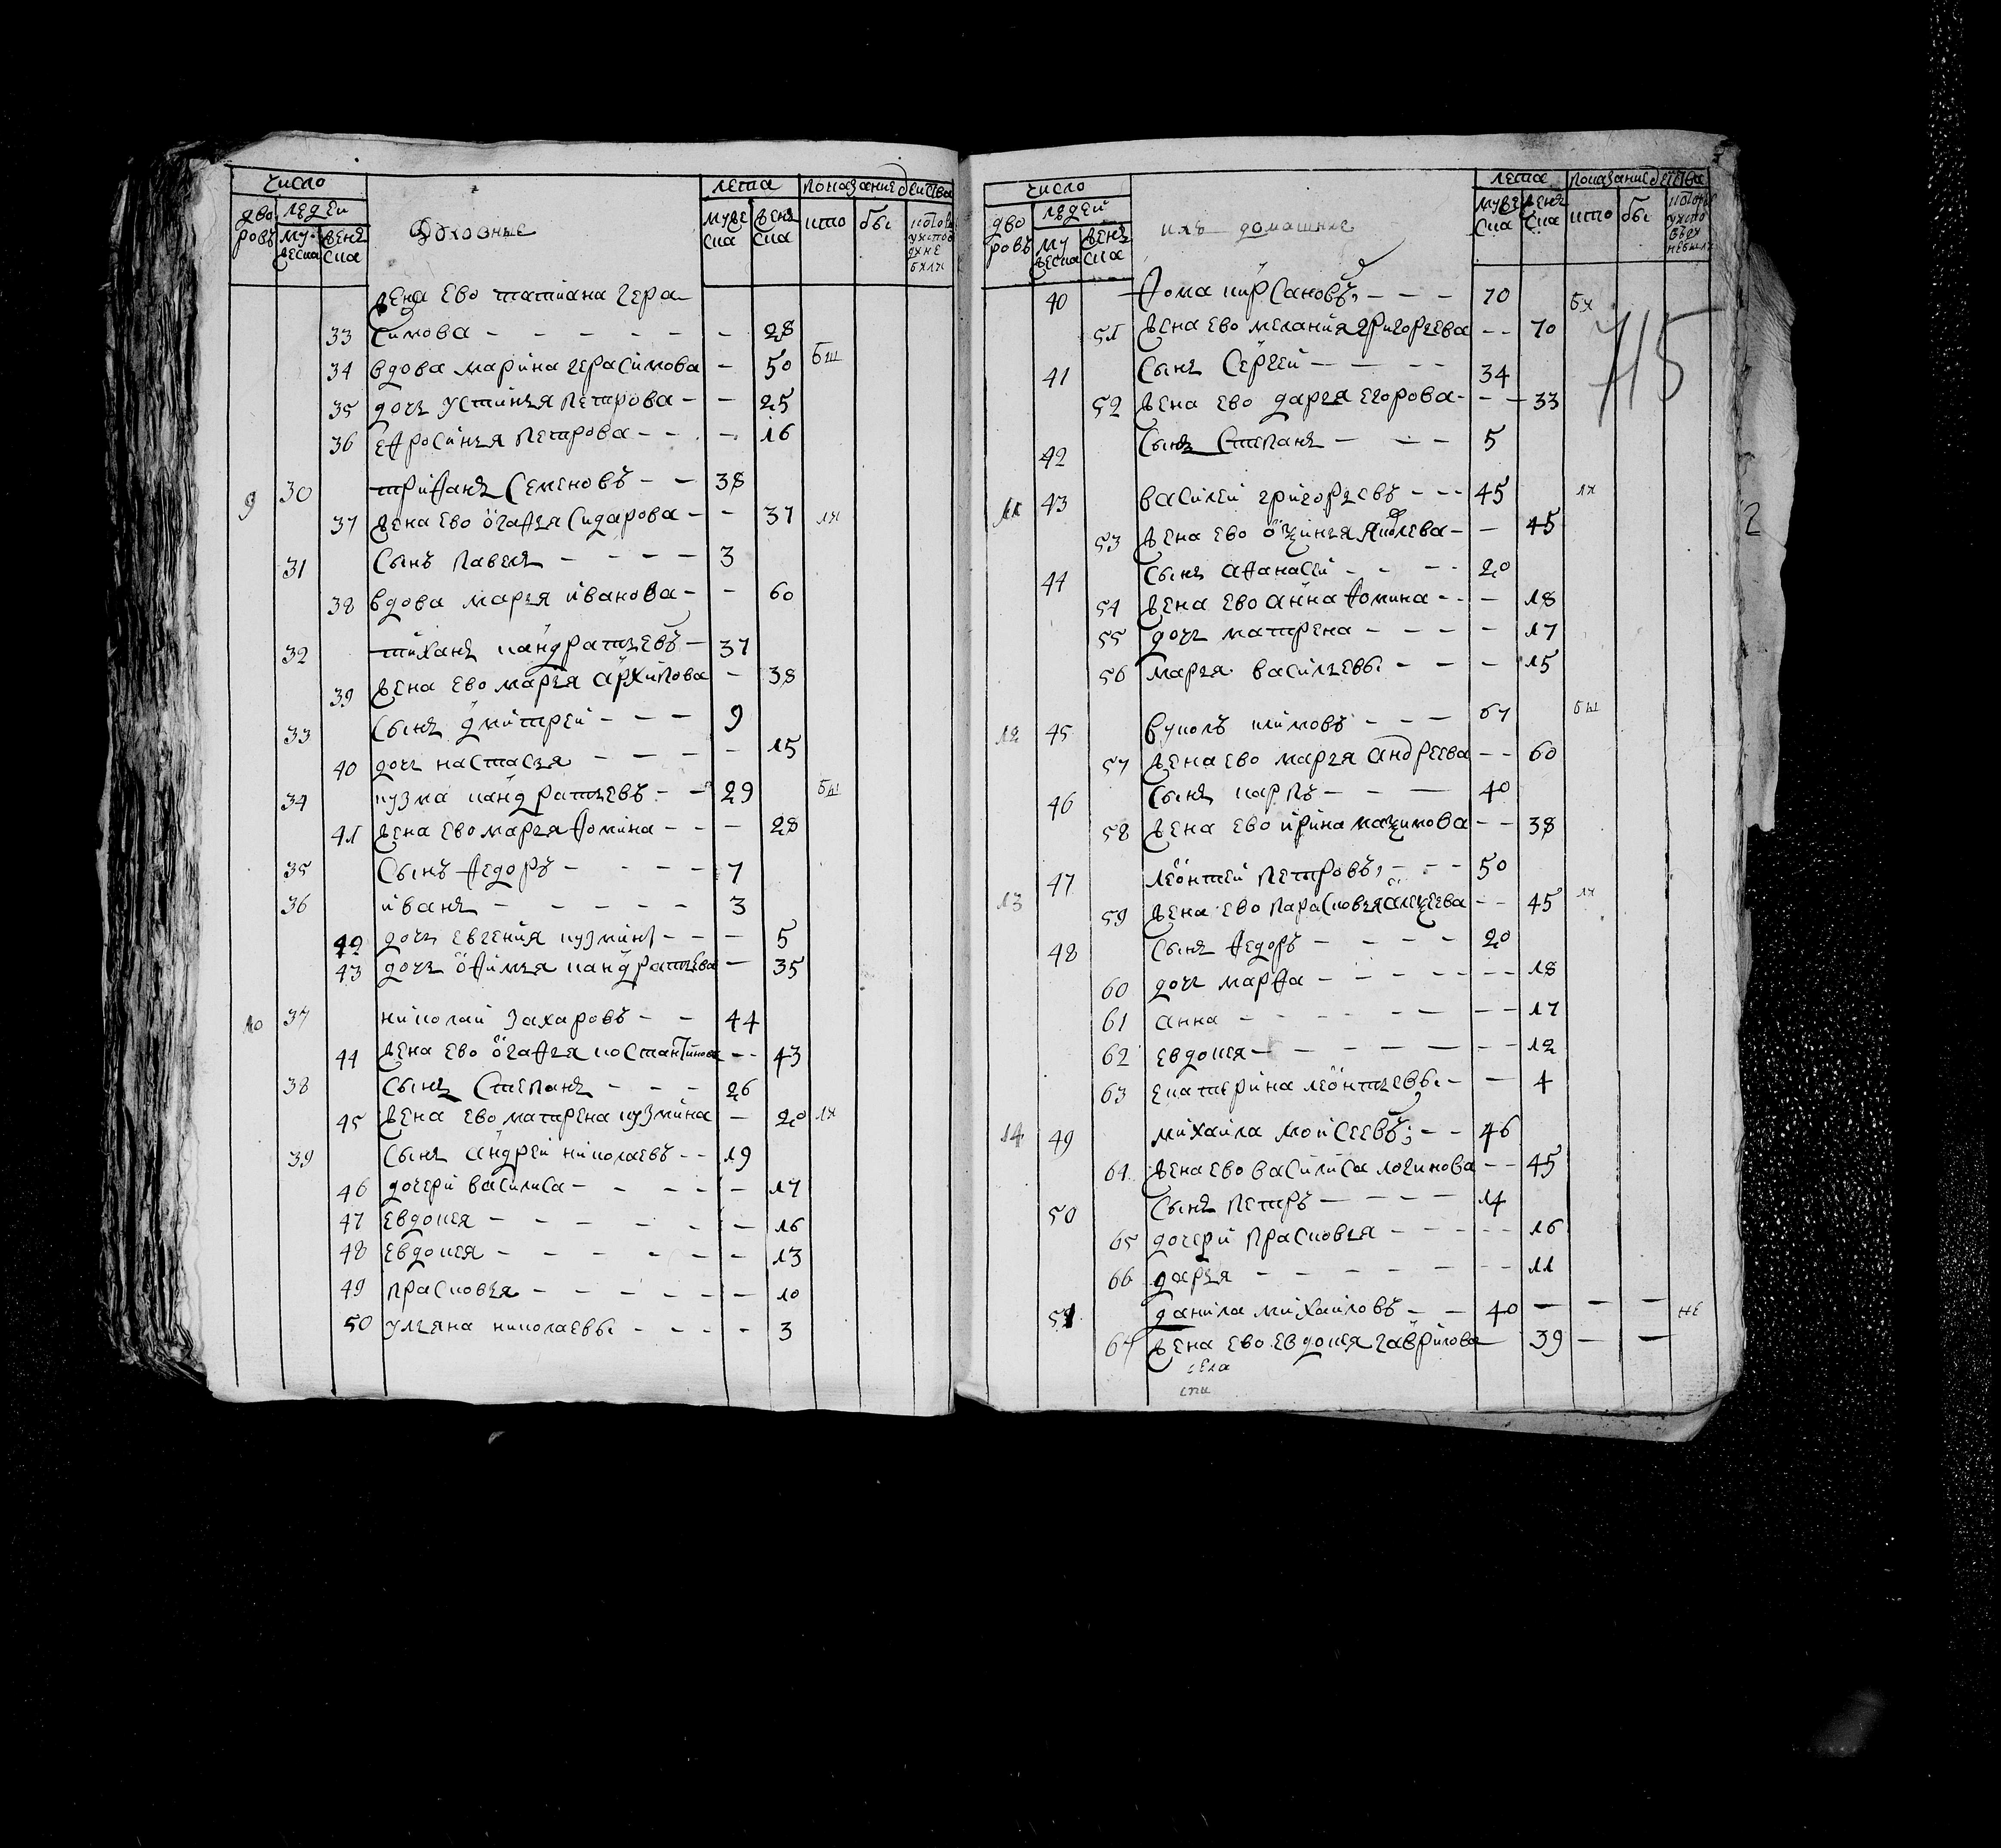 число
людей
дво
ровъ
му
жеска
женъ
ска
Духовные
лета
муже
ска
женъ
ска
показание действа
кто
бы
жена ево татиана гера
33 симова - - - - - - 28
34 вдова марина герасимова - 50 бы
35 дочь устинья петрова - - 25
36 ефросинья петрова - - - 16
9 30 трифанъ семеновъ - - 38
37 жена ево огафья сидарова - - 37
31 сынъ павелъ - - - - 3
38 вдова марья иванова - - 60
32 тиханъ кандратьевъ - 37
39 жена ево марья архипова - 38
33 сынъ дмитрей - - - 9
40 дочь настасья - - - - 15
34 кузма кандратьевъ - - 29
41 жена ево марья фомина - - - 28
35 сынъ федоръ - - - - 7
36 иванъ - - - - - 3
42 дочь евгения кузмина - - - 5
43 дочь офимья кандратьева - 35
10 37 николай захаровъ - - 44
44 жена ево огафья костантинова - - 43
38 сынъ степанъ - - - 26
45 жена ево матрена кузмина - 20
39 сынъ андрей николаевъ - - 19
46 дочери василиса - - - - - 17
47 евдокея - - - - - - 16
48 евдокея - - - - - - 13
49 прасковья - - - - - - 10
50 ульяна николаевы - - - - 3
число
людей
дво
ровъ
му
жеска
женъ
ска
ихъ домашние
лета
муже
ска
женъ
ска
показание действа
кто
бы
715
40 фома кирсановъ - - - 70
51 жена ево мелания григорьева - - 70
41 сынъ сергей - - - - 34
52 жена ево дарья егорова - - - 33
42 сынъ степанъ - - - 5
11 43 василей григорьевъ - - - 45
53 жена ево оксинья яковлева - - 45
44 сынъ афанасей - - - - 20
54 жена ево анна фомина - - - 18
55 дочь матрена - - - - 17
56 марья васильевы - - - 15
12 45 вуколъ климовъ - - - 67
57 жена ево марья андреева - - 60
46 сынъ карпъ - - - 40
58 жена ево ирина максимова - - 38
13 47 леонтей петровъ - - - 50
59 жена ево парасковья алексеева - - 45
48 сынъ федоръ - - - - 20
60 дочь марфа - - - - - - - 18
61 анна - - - - - - - - 17
62 евдокея - - - - - - - 12
63 екатерина леонтьевы - - 4
14 49 михаила моисеевъ - - 46
64 жена ево василиса логинова - - 45
50 сынъ петръ - - - - 14
65 дочери прасковья - - - - - 16
66 дарья - - - - - - - 11
51 данила михаиловъ - - 40 - - - не
67 жена ево евдокея гаврилова 39 - -
2